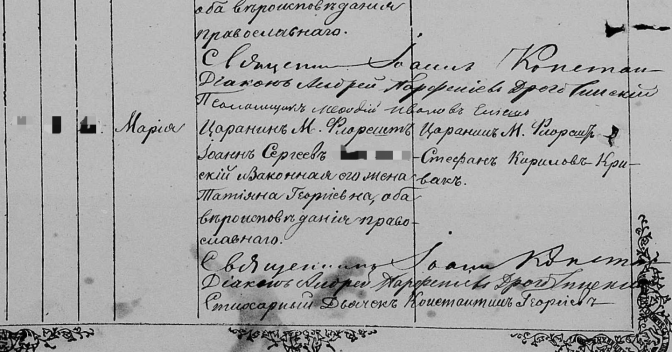 оба вѣроисповѣданія
православнаго.
Священникъ Іоаннъ Констан
Діаконъ Андрей Парфеніевъ Дрогинскій
Псаломщикъ Меѳодій Ивановъ
Марія
Царанинъ М. Флорештъ
Іоаннъ Сергеевъ
скій Законная его жена
Татіяна Георгіевна, оба
вѣроисповѣданія право-
славнаго.
Царанинъ М. Флорешт
Стефанъ Кириловъ Кри-
вакъ.
Священникъ Іоаннъ Констан
Діаконъ Андрей Парфеніевъ
Стихарный Дьячекъ Константинъ Георгіевъ